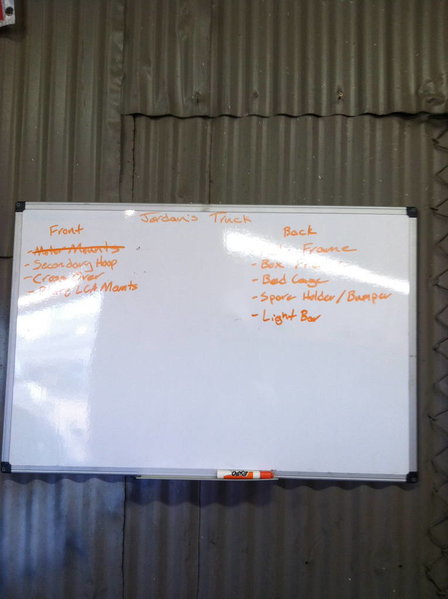 Jordan's Truck
Front
Motor Mounts
- Secondary Hoop
- Cross Over
LCA Mounts
Back
Frame
- Box
- Bed Cage
- Spare Holder/Bumper
- Light Bar
EXPO